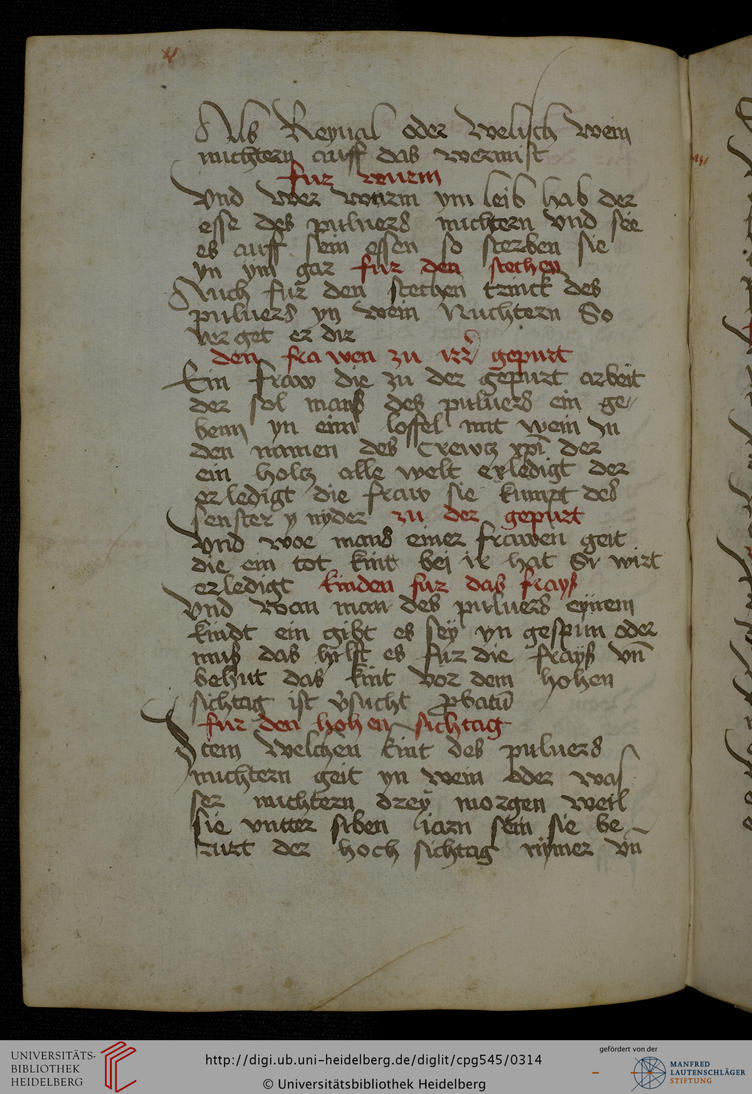 Als Reynal oder welisch wein
nuchtern auff das wermist
fur wurm
Vnd wer wurm ym leib hab der
esse des puluers nuchtern vnd see
es auff sein essen so sterben sie
yn ym gar fur den stechen
Auch fur den stechen trinck des
puluers yn wein Nuchtern So
verget er dir
den frawen zu irr gepurt
Ein fraw die zu der gepurt arbeit
der sol mans des puluers ein ge
benn yn eim loffel mit wein In
den namen des Crewtz xpi der
ein holtz alle welt erledigt der
erledigt die fraw sie kumpt des
senfter y nyder zu der gepurt
Vnd woe mans einer frawen geit
die ein tot kint bei ir hat Sy wirt
erledigt kinden fur das frayß
Vnd wan man des puluers eynem
kindt ein gibt es sey yn gespun oder
muß das hylft es fur die frayß vn̄
behut das kint vor dem hohen
sichtag ist v̉sucht ꝓbatū
fur den hohen sichtag
Item welchen kint des puluers
nuchtern geit yn wein oder was
ser nuchtern drey morgen weil
sie vntter siben iarn sein sie be
rurt der hoch sichtag nymer vn̄
UNIVERSITÄTS-
BIBLIOTHEK
HEIDELBERG
http://digi.ub.uni-heidelberg.de/diglit/cpg545/0314
© Universitätsbibliothek Heidelberg
gefördert von der
MANFRED
LAUTENSCHLÄGER
STIFTUNG